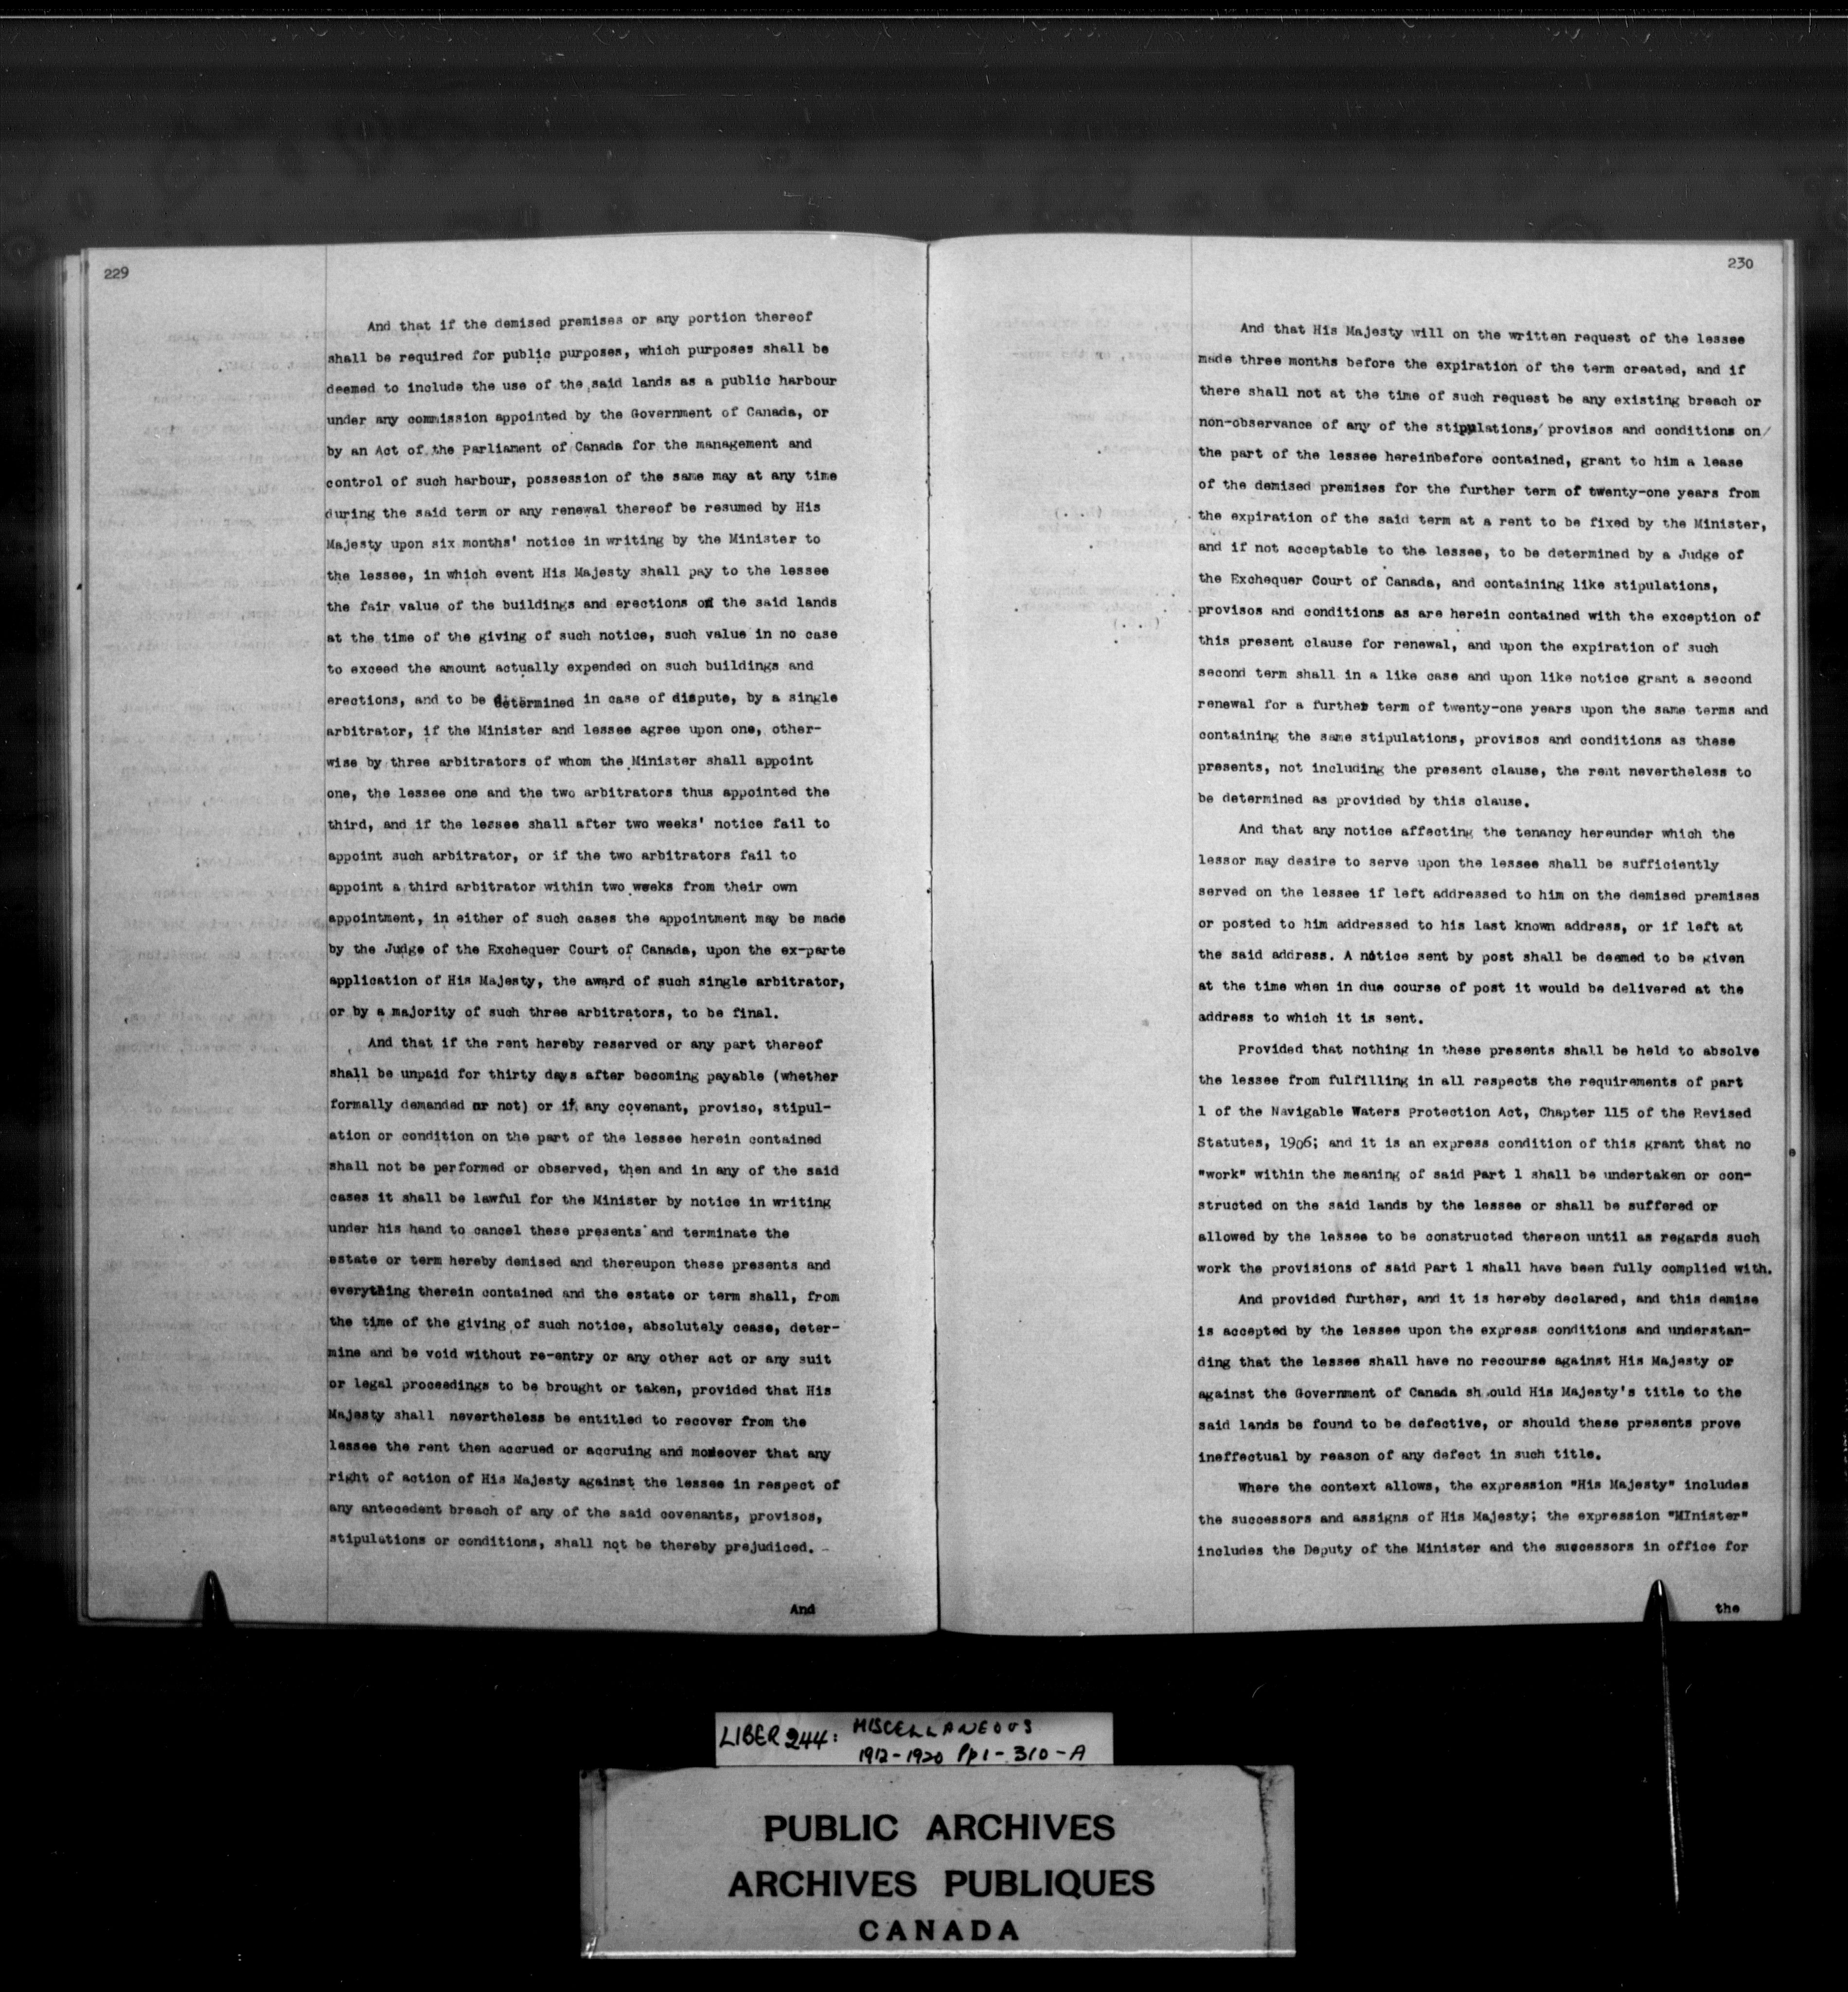 229
And that if the demised premises or any portion thereof
shall be required for public purposes, which purposes shall be
deemed to include the use of the said lands as a public harbour
under any commission appointed by the Government of Canada, or
by an Act of the Parliament of Canada for the management and
control of such harbour, possession of the same may at any time
during the said term or any renewal thereof be resumed by His
Majesty upon six months' notice in writing by the Minister to
the lessee, in which event His Majesty shall pay to the lessee
the fair value of the buildings and erections on the said lands
at the time of the giving of such notice, such value in no case
to exceed the amount actually expended on such buildings and
erections, and to be determined in case of dispute, by a single
arbitrator, if the Minister and lessee agree upon one, other-
wise by three arbitrators of whom the Minister shall appoint
one, the lessee one and the two arbitrators thus appointed the
third, and if the lessee shall after two weeks' notice fail to
appoint such arbitrator, or if the two arbitrators fail to
appoint a third arbitrator within two weeks from their own
appointment, in either of such cases the appointment may be made
by the Judge of the Exchequer Court of Canada, upon the ex-parte
application of His Majesty, the award of such single arbitrator,
or by a majority of such three arbitrators, to be final.
And that if the rent hereby reserved or any part thereof
shall be unpaid for thirty days after becoming payable (whether
formally demanded or not) or if any covenant, proviso, stipul-
ation or condition on the part of the lessee herein contained
shall not be performed or observed, then and in any of the said
cases it shall be lawful for the Minister by notice in writing
under his hand to cancel these presents and terminate the
estate or term hereby demised and thereupon these presents and
everything therein contained and the estate or term shall, from
the time of the giving of such notice, absolutely cease, deter-
mine and be void without re-entry or any other act or any suit
or legal proceedings to be brought or taken, provided that His
Majesty shall nevertheless be entitled to recover from the
lessee the rent then accrued or accruing and moreover that any
right of action of His Majesty against the lessee in respect of
any antecedent breach of any of the said covenants, provisos,
stipulations or conditions, shall not be thereby prejudiced. -
And
230
And that His Majesty will on the written request of the lessee
made three months before the expiration of the term created, and if
there shall not at the time of such request be any existing breach or
non-observance of any of the stipulations, provisos and conditions on
the part of the lessee hereinbefore contained, grant to him a lease
of the demised premises for the further term of twenty-one years from
the expiration of the said term at a rent to be fixed by the Minister,
and if not acceptable to the lessee, to be determined by a Judge of
the Exchequer Court of Canada, and containing like stipulations,
provisos and conditions as are herein contained with the exception of
this present clause for renewal, and upon the expiration of such
second term shall in a like case and upon like notice grant a second
renewal for a further term of twenty-one years upon the same terms and
containing the same stipulations, provisos and conditions as these
presents, not including the present clause, the rent nevertheless to
be determined as provided by this clause.
And that any notice affecting the tenancy hereunder which the
lessor may desire to serve upon the lessee shall be sufficiently
served on the lessee if left addressed to him on the demised premises
or posted to him addressed to his last known address, or if left at
the said address. A notice sent by post shall be deemed to be given
at the time when in due course of post it would be delivered at the
address to which it is sent.
Provided that nothing in these presents shall be held to absolve
the lessee from fulfilling in all respects the requirements of part
1 of the Navigable Waters Protection Act, Chapter 115 of the Revised
Statutes, 1906; and it is an express condition of this grant that no
"work" within the meaning of said Part 1 shall be undertaken or con-
structed on the said lands by the lessee or shall be suffered or
allowed by the lessee to be constructed thereon until as regards such
work the provisions of said Part 1 shall have been fully complied with.
And provided further, and it is hereby declared, and this demise
is accepted by the lessee upon the express conditions and understan-
ding that the lessee shall have no recourse against His Majesty or
against the Government of Canada should His Majesty's title to the
said lands be found to be defective, or should these presents prove
ineffectual by reason of any defect in such title.
Where the context allows, the expression "His Majesty" includes
the successors and assigns of His Majesty; the expression "MInister"
includes the Deputy of the Minister and the successors in office for
the
LIBER 244: MISCELLANEOUS
1912-1920 Pp 1-310-A
PUBLIC ARCHIVES
ARCHIVES PUBLIQUES
CANADA